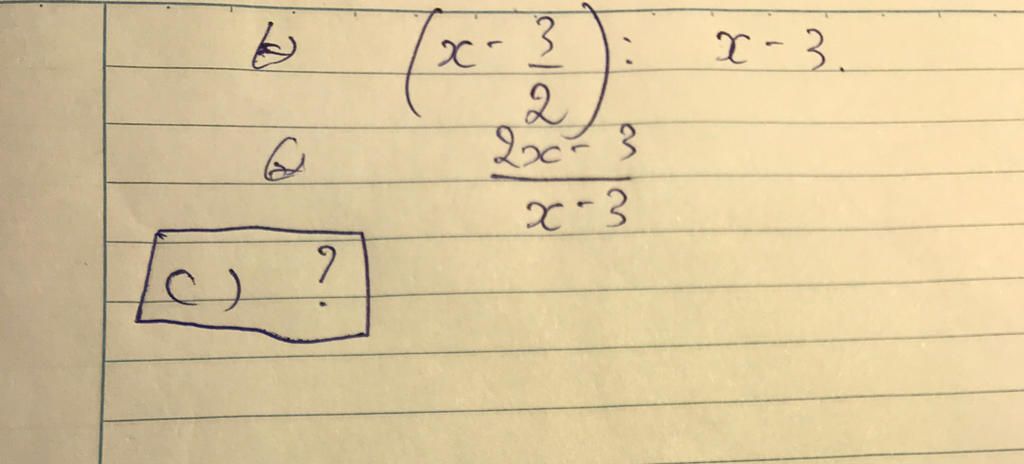 b) (x - 3/2) : x - 3.
(2x - 3)/(x - 3)
c) ?